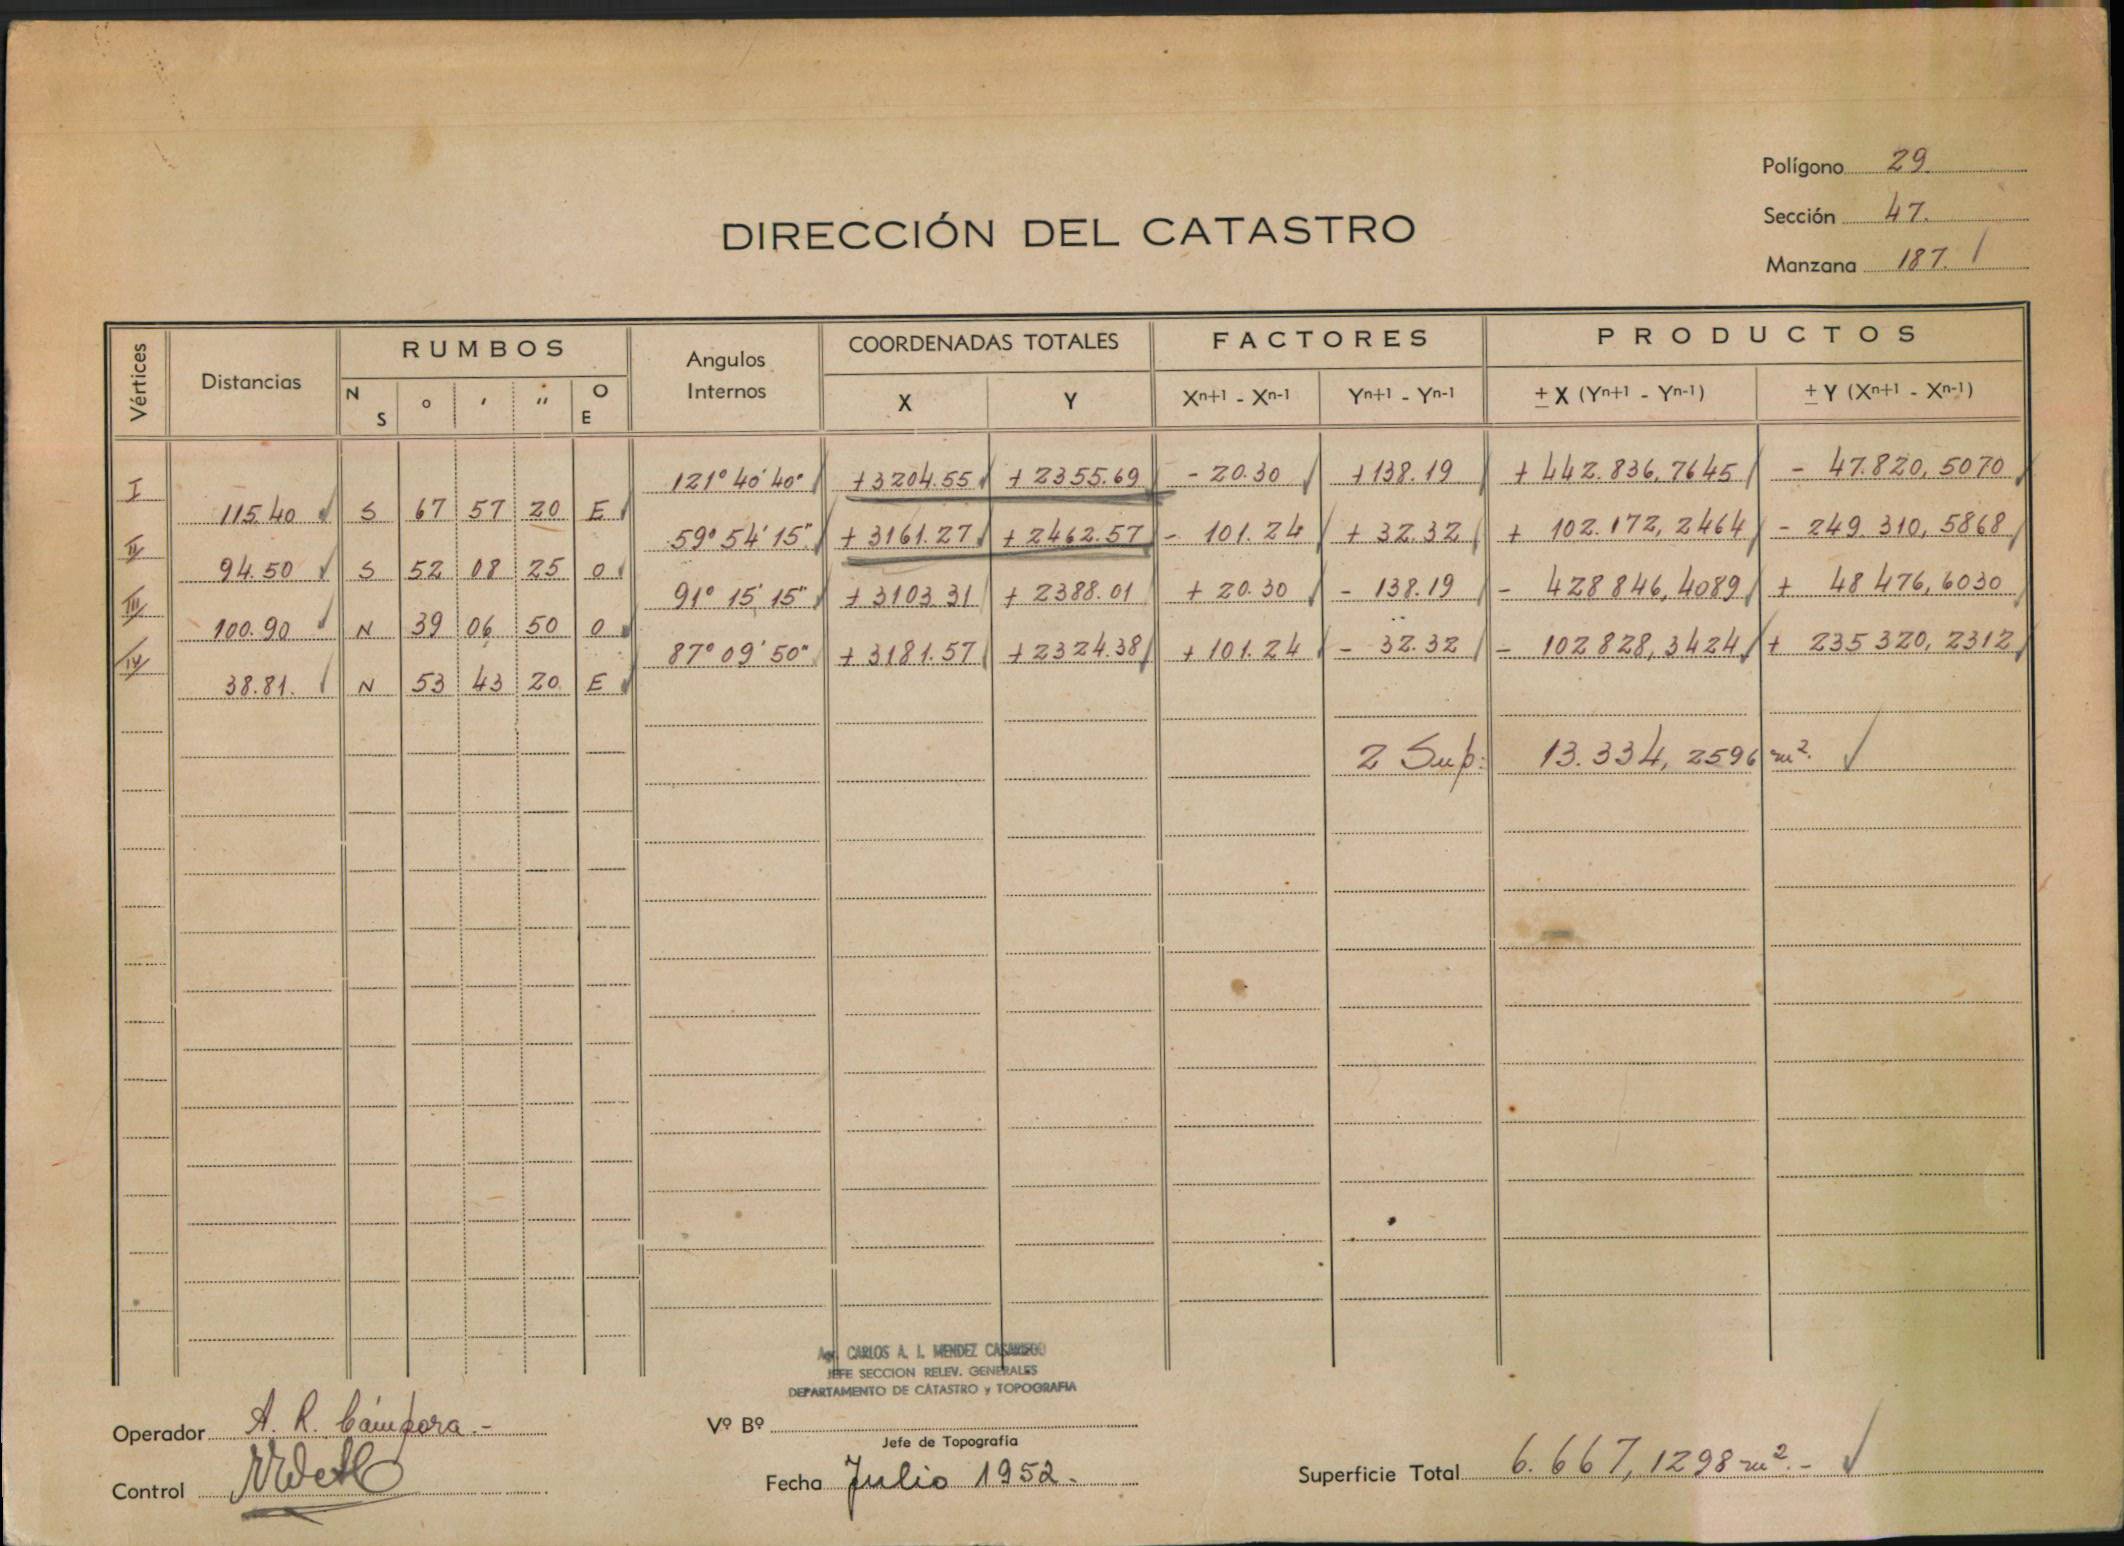 Polígono 29.
Sección 47.
DIRECCIÓN DEL CATASTRO
Manzana 187.
Vértices Distancias RUMBOS Angulos Internos COORDENADAS TOTALES FACTORES PRODUCTOS
N S ° ' " O E X Y Xn+1 - Xn-1 Yn+1 - Yn-1 ± X (Yn+1 - Yn-1) ± Y (Xn+1 - Xn-1)
I 121° 40' 40" +3204.55 + 2355.69 - 20.30 +138.19 + 442.836,7645 - 47.820,5070
115.40 S 67 57 20 E
II 59° 54' 15" + 3161.27 + 2462.57 - 101.24 + 32.32 + 102.172,2464 - 249.310,5868
94.50 S 52 08 25 O
III 91° 15' 15" + 3103.31 + 2388.01 + 20.30 - 138.19 - 428846,4089 + 48476,6030
100.90 N 39 06 50 O
IV 87° 09' 50" + 3181.57 + 2324.38 + 101.24 - 32.32 - 102828,3424 + 235320,2312
38.81. N 53 43 20 E
2 Sup: 13.334,2596 m².
Agr. CARLOS A. I. MENDEZ CASARIEGO
JEFE SECCION RELEV. GENERALES
DEPARTAMENTO DE CATASTRO y TOPOGRAFIA
Operador A. R. Cámpora.-
Vº Bº
Jefe de Topografía
Control
Fecha Julio 1952.
Superficie Total 6.667,1298 m².-